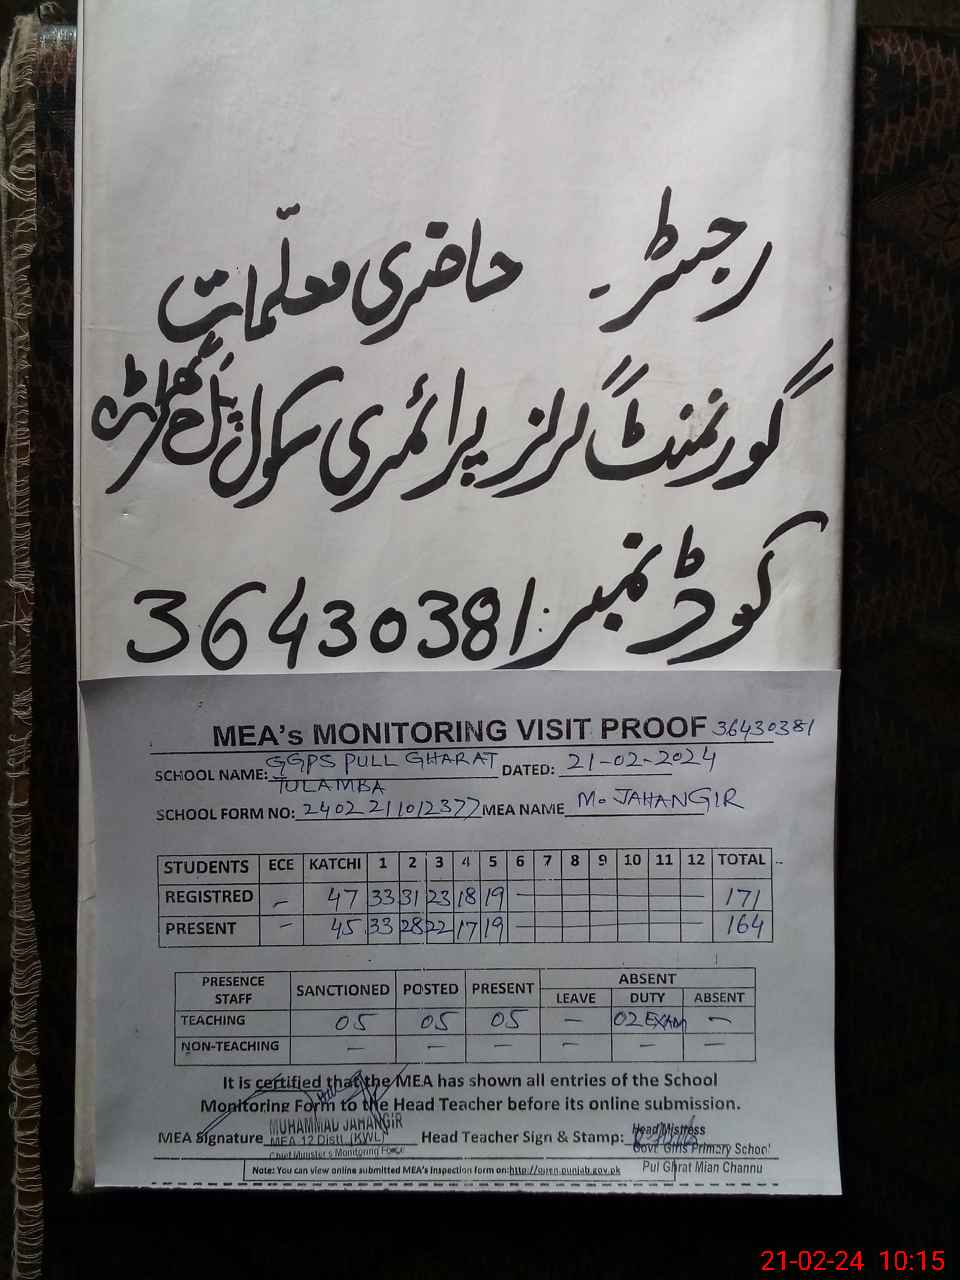 رجسٹر حاضری معلّمات
گورنمنٹ گرلز پرائمری سکول پل گھراٹ
کوڈ نمبر: 36430381
MEA's MONITORING VISIT PROOF 36430381
SCHOOL NAME: GGPS PULL GHARAT DATED: 21-02-2024
TULAMBA
SCHOOL FORM NO: 2402211012377 MEA NAME M. JAHANGIR
STUDENTS ECE KATCHI 1 2 3 4 5 6 7 8 9 10 11 12 TOTAL
REGISTRED - 47 33 31 23 18 19 171
PRESENT - 45 33 28 22 17 19 164
PRESENCE STAFF SANCTIONED POSTED PRESENT ABSENT
LEAVE DUTY ABSENT
TEACHING 05 05 05 - 02 EXAM -
NON-TEACHING - - - - - -
It is certified that the MEA has shown all entries of the School
Monitoring Form to the Head Teacher before its online submission.
MEA Signature Head Teacher Sign & Stamp:
MUHAMMAD JAHANGIR
MEA 12 Distt. (KWL)
Chief Minister's Monitoring Force
Head Mistress
Govt Girls Primary School
Pul Ghrat Mian Channu
Note: You can view online submitted MEA's Inspection form on:http://open.punjab.gov.pk
21-02-24 10:15